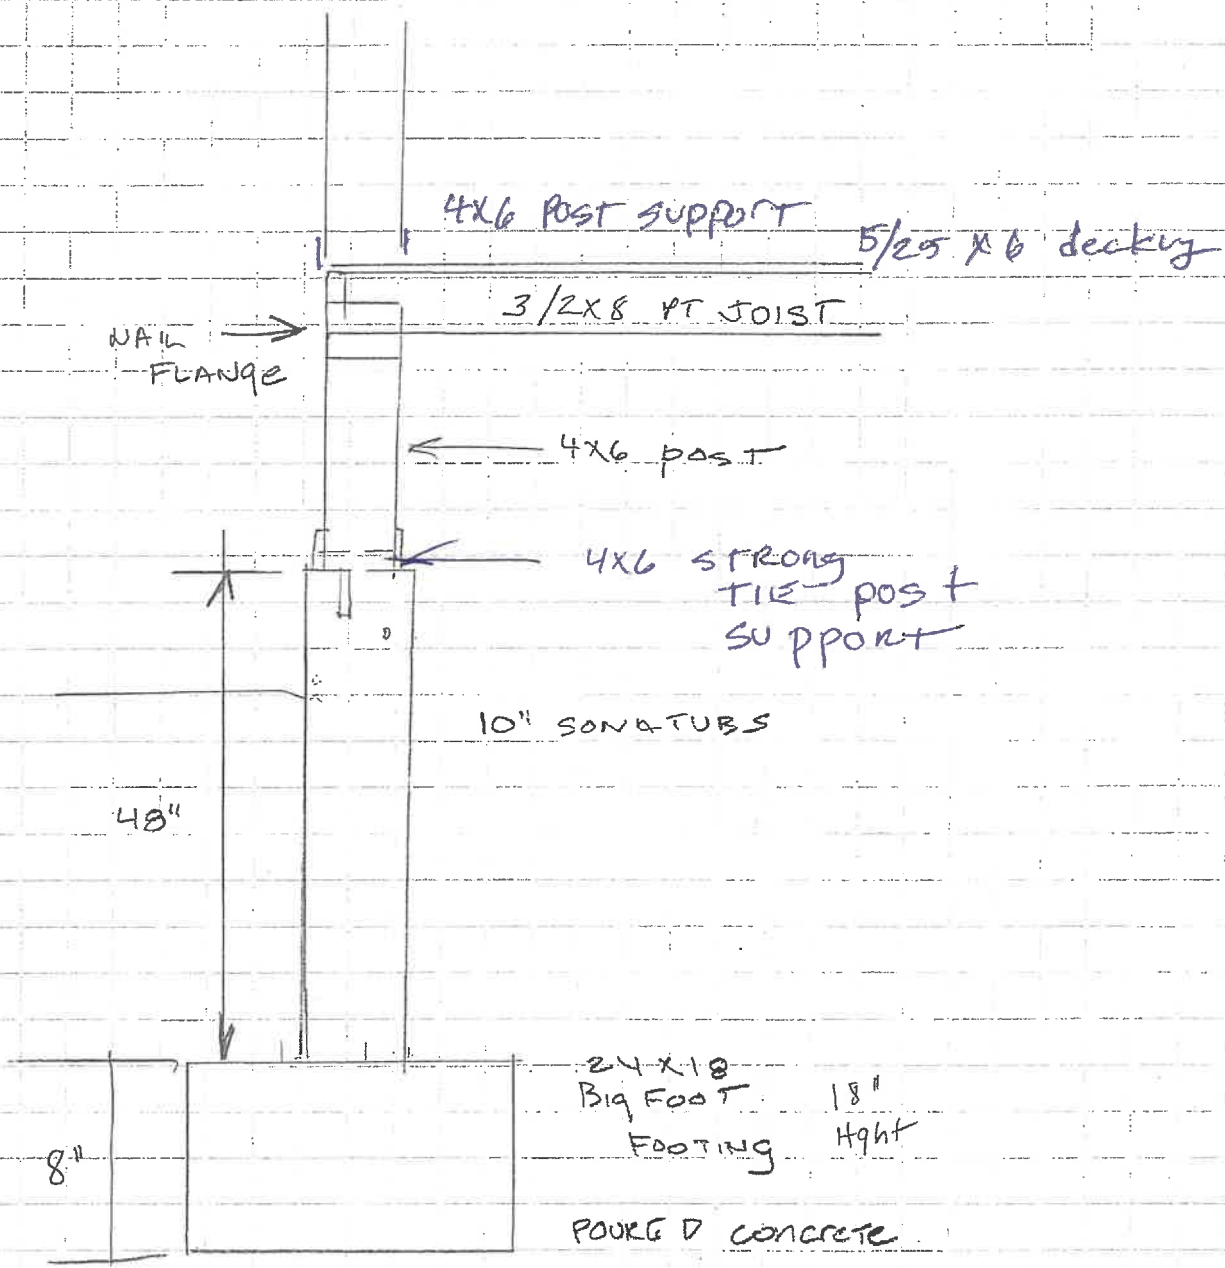 4X6 POST SUPPORT
5/25 X 6 decking
3/2X8 PT JOIST
NAIL
FLANGE
4X6 post
4X6 STRONG
TIE post
SUPPORT
10" SONATUBS
48"
24 X 18
Big FOOT 18"
FOOTING Hght
8"
POURED concrete